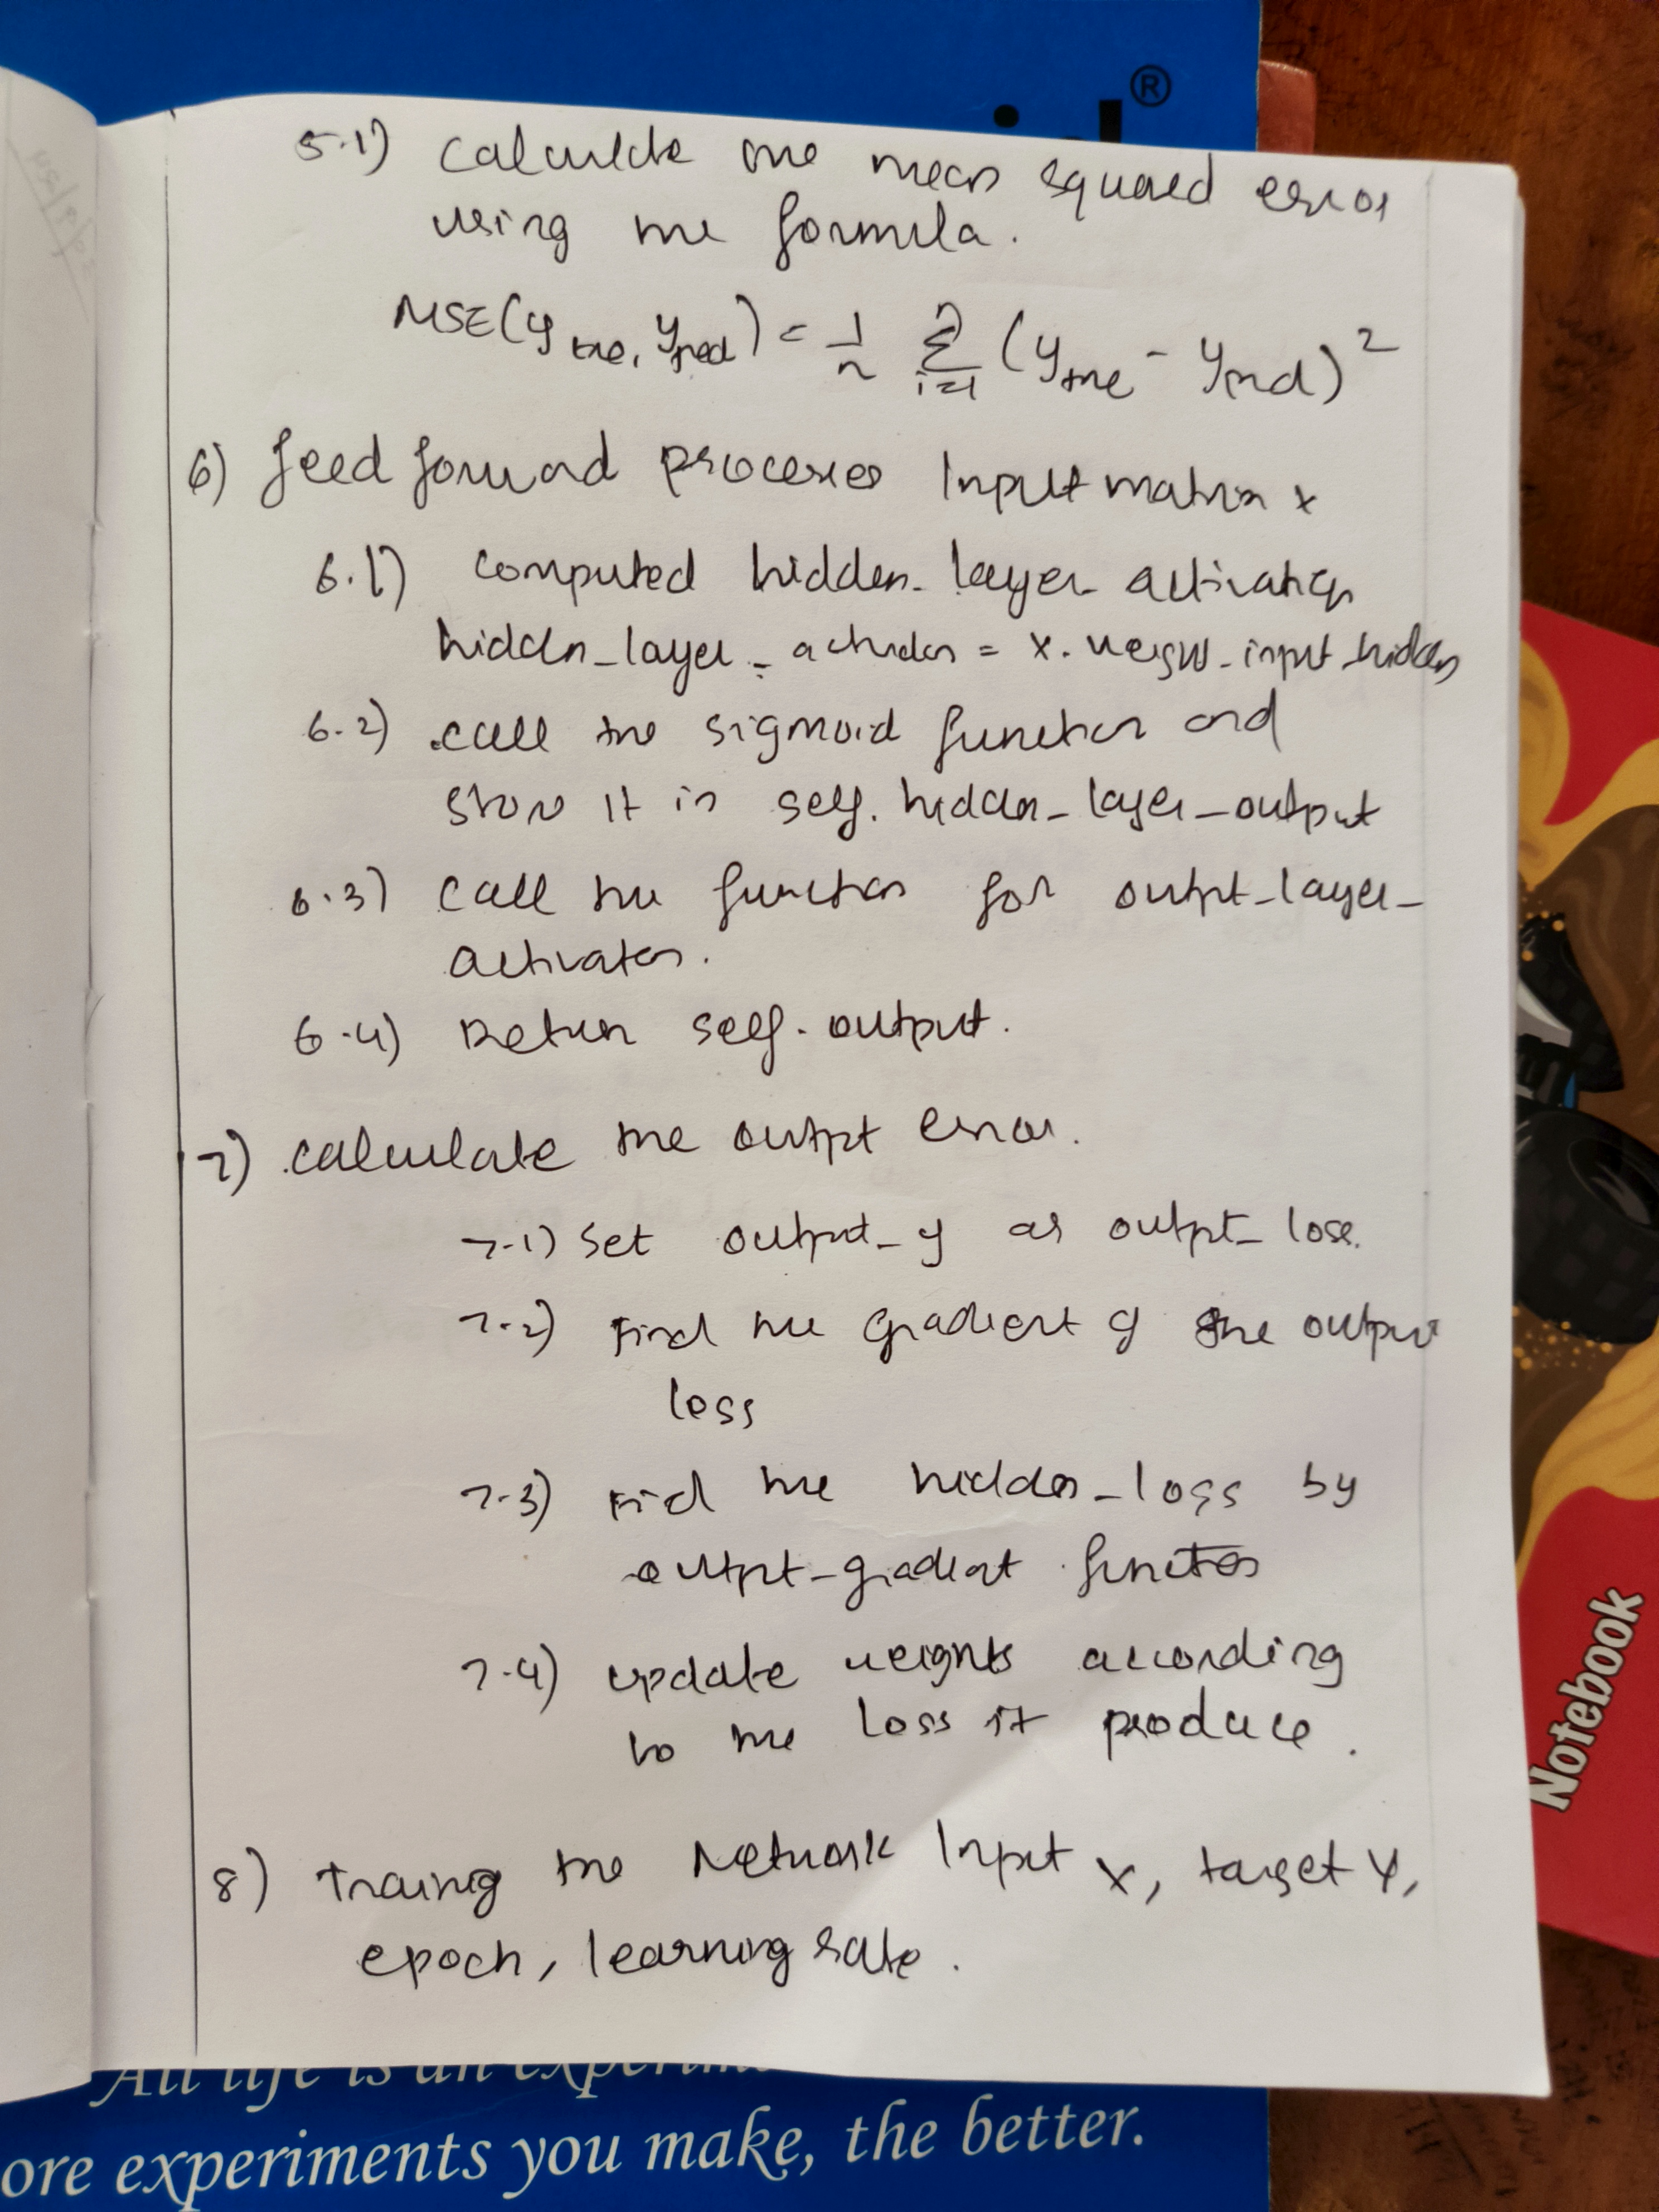 ®
5.1) Calculate the mean squared error
using the formula.
MSE(y true, y pred) = 1/n Σ i=1 n (y true - y pred)²
6) feed forward processes Input matrix x
6.1) computed hidden_layer_activation
hidden_layer_activation = x. weight_input_hidden
6.2) call the sigmoid function and
store it in self.hidden_layer_output
6.3) call the function for output_layer_
activation.
6.4) Return self.output.
7) calculate the output error.
7.1) Set output_y as output_loss.
7.2) Find the gradient of the output
loss
7.3) Find the hidden_loss by
output_gradient function
7.4) update weights according
to the loss it produce.
8) Training the Network Input x, target y,
epoch, learning rate.
Notebook
All life is an experim
ore experiments you make, the better.